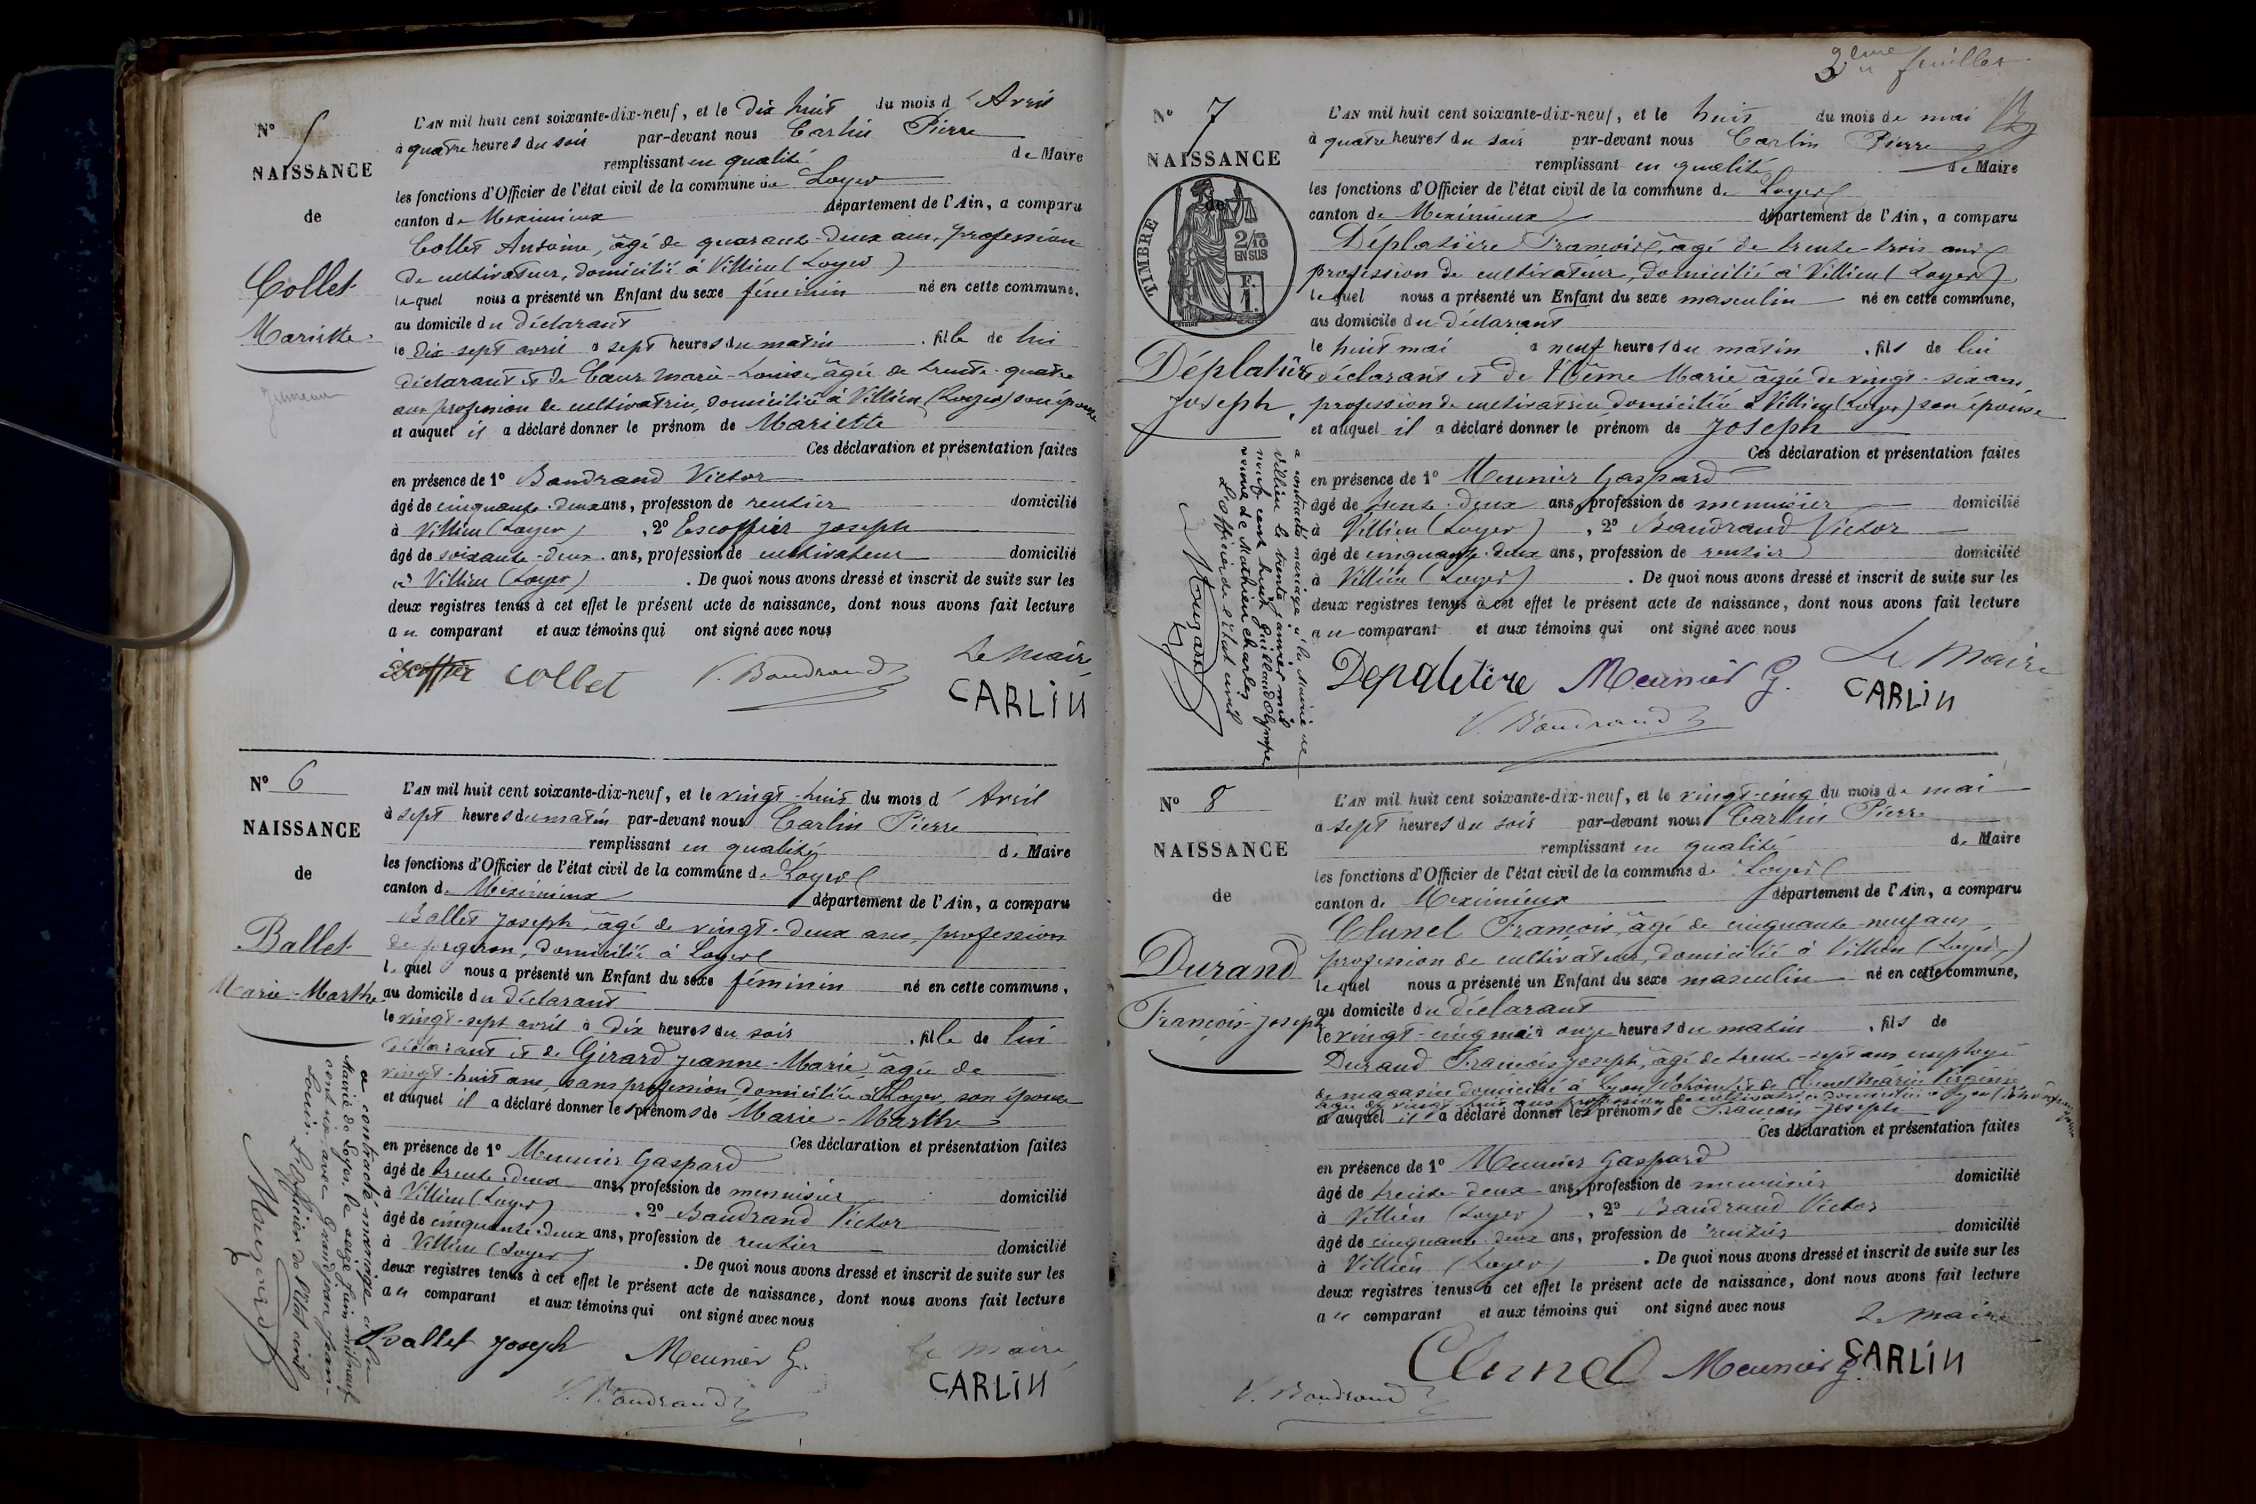 N° 5
NAISSANCE
de
Collet
Mariette
Jumeau
L'AN mil huit cent soixante-dix-neuf, et le dix huit du mois d'Avril
à quatre heures du soir par-devant nous Carlin Pierre
remplissant en qualité de Maire
les fonctions d'Officier de l'état civil de la commune de Loyes
canton de Meximieux département de l'Ain, a comparu
Collet Antoine, âgé de quarante-deux ans, profession
de cultivateur, domicilié à Villieu (Loyes)
lequel nous a présenté un Enfant du sexe féminin né en cette commune,
au domicile du déclarant
le dix-sept avril à sept heures du matin, fille de lui
déclarant et de Cœur Marie-Louise, âgée de trente-quatre
ans profession de cultivatrice, domiciliée à Villieu (Loyes) son épouse
et auquel il a déclaré donner le prénom de Mariette
Ces déclaration et présentation faites
en présence de 1° Baudrand Victor
âgé de cinquante-deux ans, profession de rentier domicilié
à Villieu (Loyes), 2° Escoffier Joseph
âgé de soixante-deux ans, profession de cultivateur domicilié
à Villieu (Loyes). De quoi nous avons dressé et inscrit de suite sur les
deux registres tenus à cet effet le présent acte de naissance, dont nous avons fait lecture
au comparant et aux témoins qui ont signé avec nous
Escoffier Collet V. Baudrand Le Maire
CARLIN
N° 6
NAISSANCE
de
Ballet
Marie-Marthe
a contracté mariage à la
Mairie de Loyes, le seize juin mil neuf
cent six avec Grandjean Jean-
Louis. L'Officier de l'état civil
L'AN mil huit cent soixante-dix-neuf, et le vingt-huit du mois d'Avril
à sept heures du matin par-devant nous Carlin Pierre
remplissant en qualité de Maire
les fonctions d'Officier de l'état civil de la commune de Loyes
canton de Meximieux département de l'Ain, a comparu
Ballet Joseph, âgé de vingt-deux ans, profession
de forgeron, domicilié à Loyes
lequel nous a présenté un Enfant du sexe féminin né en cette commune,
au domicile du déclarant
le vingt-sept avril à dix heures du soir, fille de lui
déclarant et de Girard Jeanne-Marie âgée de
vingt-huit ans, sans profession, domiciliée à Loyes, son épouse
et auquel il a déclaré donner les prénoms de Marie-Marthe
Ces déclaration et présentation faites
en présence de 1° Meunier Gaspard
âgé de trente-deux ans, profession de menuisier domicilié
à Villieu (Loyes), 2° Baudrand Victor
âgé de cinquante-deux ans, profession de rentier domicilié
à Villieu (Loyes). De quoi nous avons dressé et inscrit de suite sur les
deux registres tenus à cet effet le présent acte de naissance, dont nous avons fait lecture
au comparant et aux témoins qui ont signé avec nous
Ballet Joseph Meunier G. Le maire
V. Baudrand CARLIN
2eme feuillet
N° 7
NAISSANCE
de
TIMBRE
2/10
EN SUS
F.
1.
Déplatière
Joseph
a contracté mariage à la Mairie de
Villieu le trente janvier mil
neuf cent huit Guilland Olympe
veuve de Mathieu Charles
L'officier de l'état civil
L'AN mil huit cent soixante-dix-neuf, et le huit du mois de mai
à quatre heures du soir par-devant nous Carlin Pierre
remplissant en qualité de Maire
les fonctions d'Officier de l'état civil de la commune de Loyes
canton de Meximieux département de l'Ain, a comparu
Déplatière François, âgé de trente-trois ans
profession de cultivateur, domicilié à Villieu (Loyes)
lequel nous a présenté un Enfant du sexe masculin né en cette commune,
au domicile du déclarant
le huit mai à neuf heures du matin, fils de lui
déclarant et de Marie âgée de vingt-six ans,
profession de cultivatrice domiciliée à Villieu (Loyes) son épouse
et auquel il a déclaré donner le prénom de Joseph
Ces déclaration et présentation faites
en présence de 1° Meunier Gaspard
âgé de trente-deux ans, profession de menuisier domicilié
à Villieu (Loyes), 2° Baudrand Victor
âgé de cinquante-deux ans, profession de rentier domicilié
à Villieu (Loyes). De quoi nous avons dressé et inscrit de suite sur les
deux registres tenus à cet effet le présent acte de naissance, dont nous avons fait lecture
au comparant et aux témoins qui ont signé avec nous
Depalitière Meunier G. Le Maire
CARLIN
V. Baudrand
N° 8
NAISSANCE
de
Durand
François-Joseph
L'AN mil huit cent soixante-dix-neuf, et le vingt-cinq du mois de mai
à sept heures du soir par-devant nous Carlin Pierre
remplissant en qualité de Maire
les fonctions d'Officier de l'état civil de la commune de Loyes
canton de Meximieux département de l'Ain, a comparu
Clunel François, âgé de cinquante-neuf ans,
profession de cultivateur, domicilié à Villieu (Loyes)
lequel nous a présenté un Enfant du sexe masculin né en cette commune,
au domicile du déclarant
le vingt-cinq mai à onze heures du matin, fils de
Durand François Joseph, âgé de trente-sept ans employé
de magasin domicilié à Lyon (Rhône) et de Clunel Marie Virginie
âgée de vingt huit ans profession de cultivatrice domiciliée à Lyon (Rhône)
et auquel il a déclaré donner les prénoms de François-Joseph
Ces déclaration et présentation faites
en présence de 1° Meunier Gaspard
âgé de trente-deux ans, profession de menuisier domicilié
à Villieu (Loyes), 2° Baudrand Victor
âgé de cinquante-deux ans, profession de rentier domicilié
à Villieu (Loyes). De quoi nous avons dressé et inscrit de suite sur les
deux registres tenus à cet effet le présent acte de naissance, dont nous avons fait lecture
au comparant et aux témoins qui ont signé avec nous
Le maire
Clunel Meunier G. CARLIN
V. Baudrand